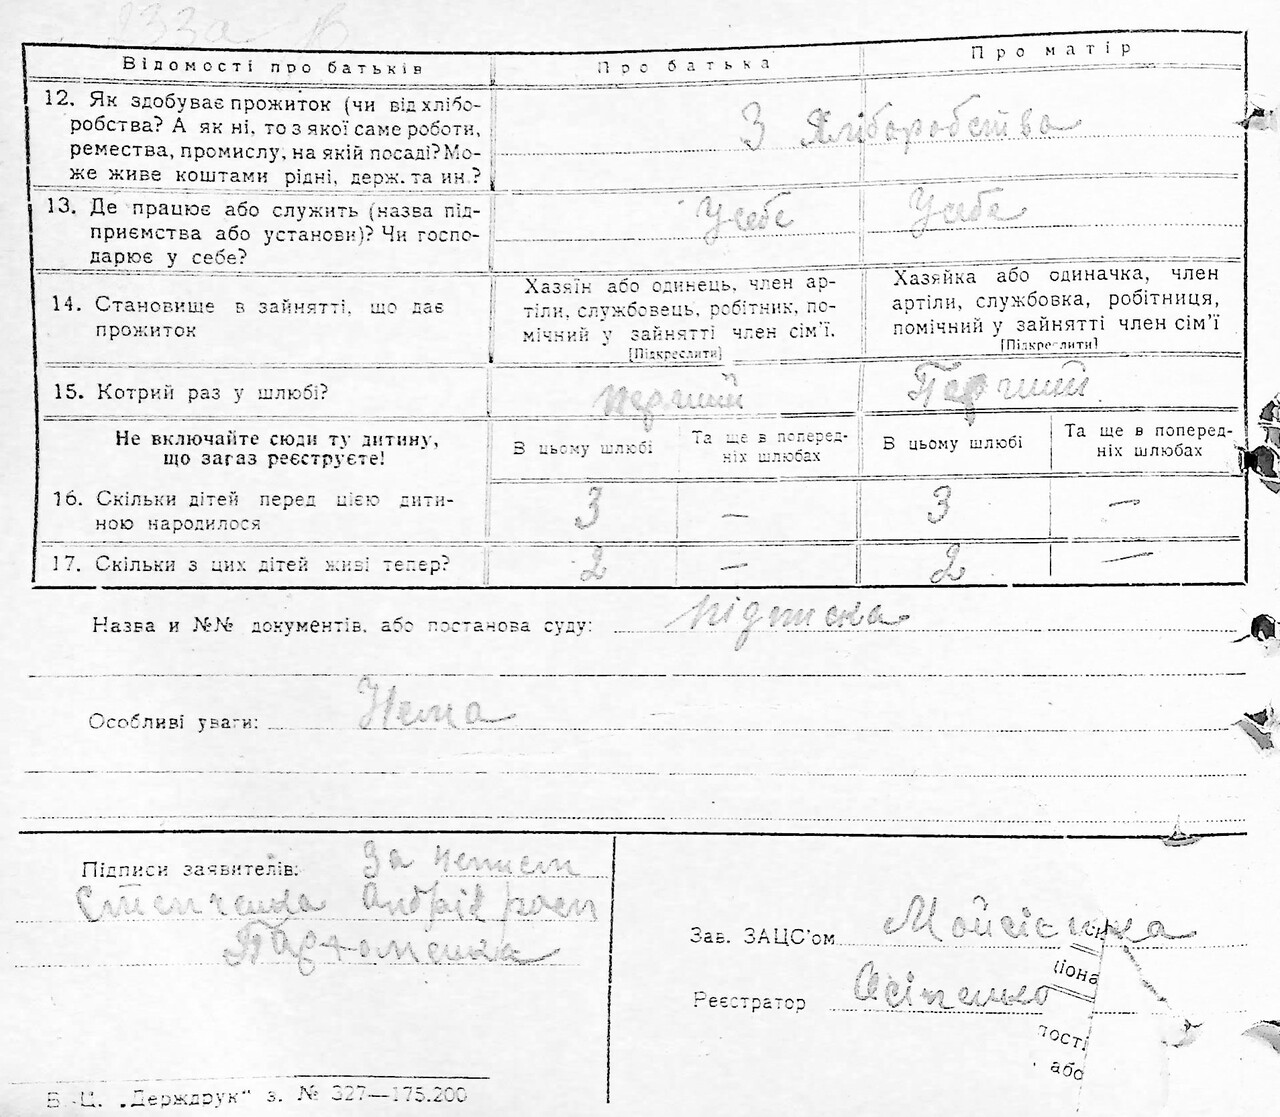 233а
Відомості про батьків Про батька Про матір
12. Як здобуває прожиток (чи від хлібо-
робства? А як ні, то з якої саме роботи,
ремества, промислу, на якій посаді? Мо-
же живе коштами рідні, держ. та ин.?
З Хліборобства
13. Де працює або служить (назва під-
приємства або установи)? Чи госпо-
дарює у себе?
У себе У себе
14. Становище в зайнятті, що дає
прожиток
Хазяїн або одинець, член ар-
тіли, службовець, робітник, по-
мічний у зайнятті член сім'ї.
[Підкреслити]
Хазяйка або одиначка, член
артіли, службовка, робітниця,
помічний у зайнятті член сім'ї
[Підкреслити]
15. Котрий раз у шлюбі? перший Перший
Не включайте сюди ту дитину,
що зараз реєструєте!
В цьому шлюбі
Та ще в поперед-
ніх шлюбах
В цьому шлюбі
Та ще в поперед-
ніх шлюбах
16. Скільки дітей перед цією дити-
ною народилося
3 — 3 —
17. Скільки з цих дітей живі тепер? 2 — 2 —
Назва и №№ документів, або постанова суду: підписка
Особливі уваги: Нема
Підписи заявителів: За неписм
Степченка Андрій росп
Пархоменка
Зав. ЗАЦС'ом
Реєстратор
ціона
ності
або
Б. Ц. „Держдрук“ з. № 327—175.200